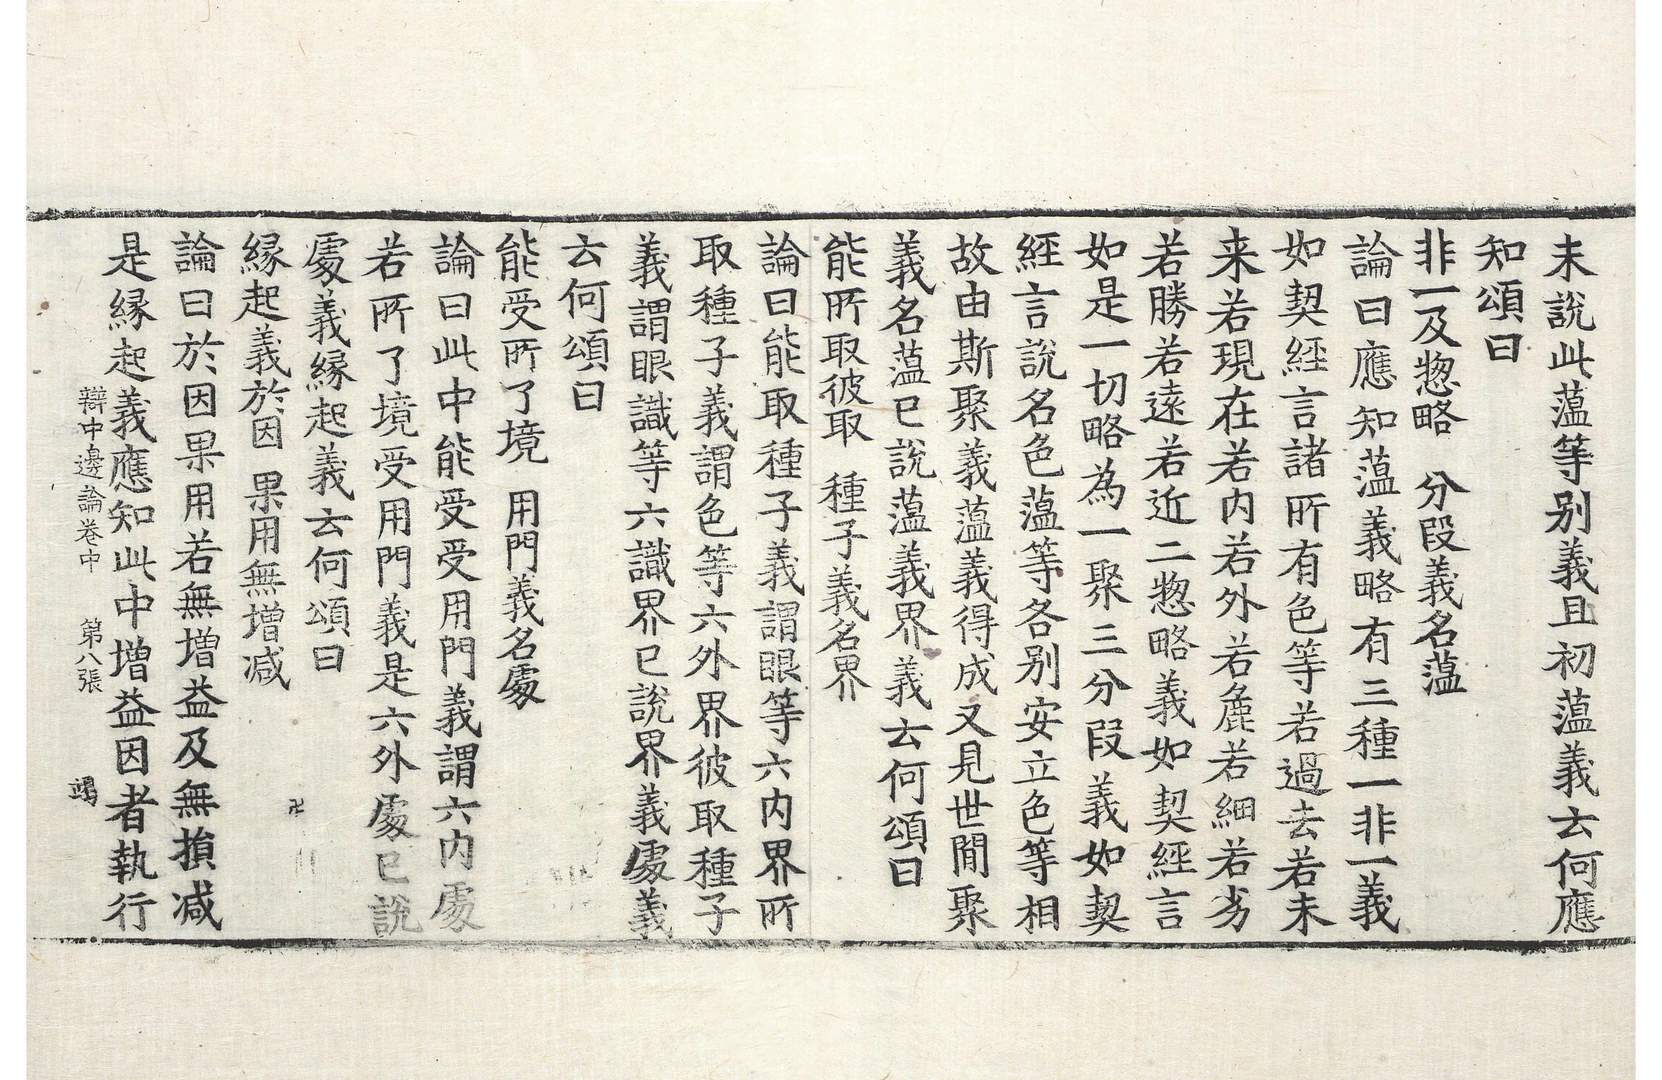 未說此薀等别義且初薀義云何應
知頌曰
非一及惣略 分段義名薀
論曰應知薀義略有三種一非一義
如契經言諸所有色等若過去若未
来若現在若内若外若麁若細若劣
若勝若遠若近二惣略義如契經言
如是一切略為一聚三分段義如契
經言說名色薀等各别安立色等相
故由斯聚義薀義得成又見世間聚
義名薀已說薀義界義云何頌曰
能所取彼取 種子義名界
論曰能取種子義謂眼等六内界所
取種子義謂色等六外界彼取種子
義謂眼識等六識界已說界義處義
云何頌曰
能受所了境 用門義名處
論曰此中能受受用門義謂六内處
若所了境受用門義是六外處已說
處義縁起義云何頌曰
縁起義於因 果用無增減
論曰於因果用若無增益及無損減
是縁起義應知此中增益因者執行
辯中邊論卷中 第八張 竭
卍